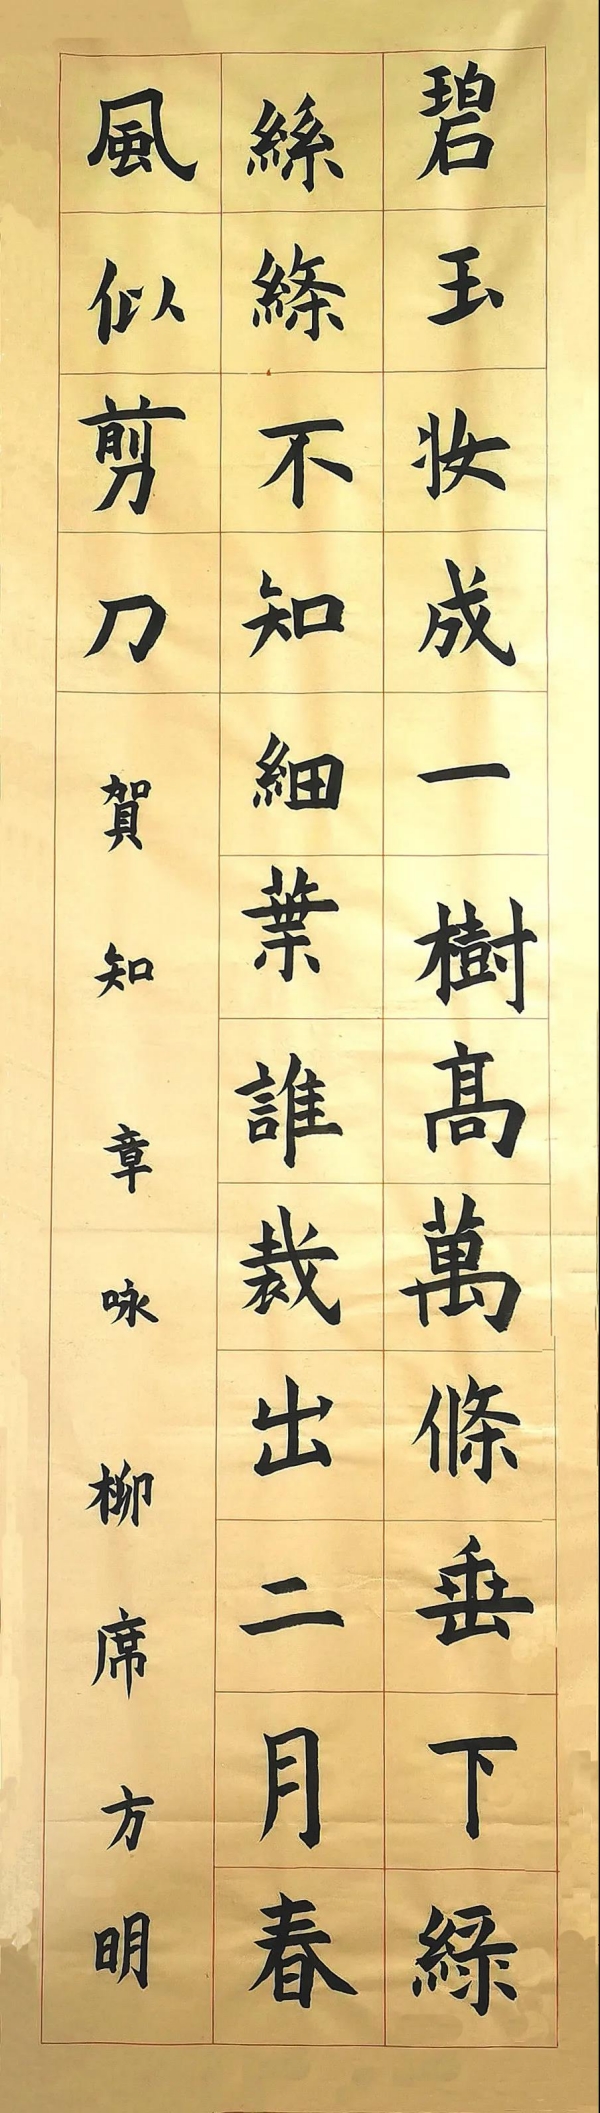 碧玉妆成一樹高萬條垂下綠
絲絛不知細葉誰裁出二月春
風似剪刀賀知章咏柳席方明